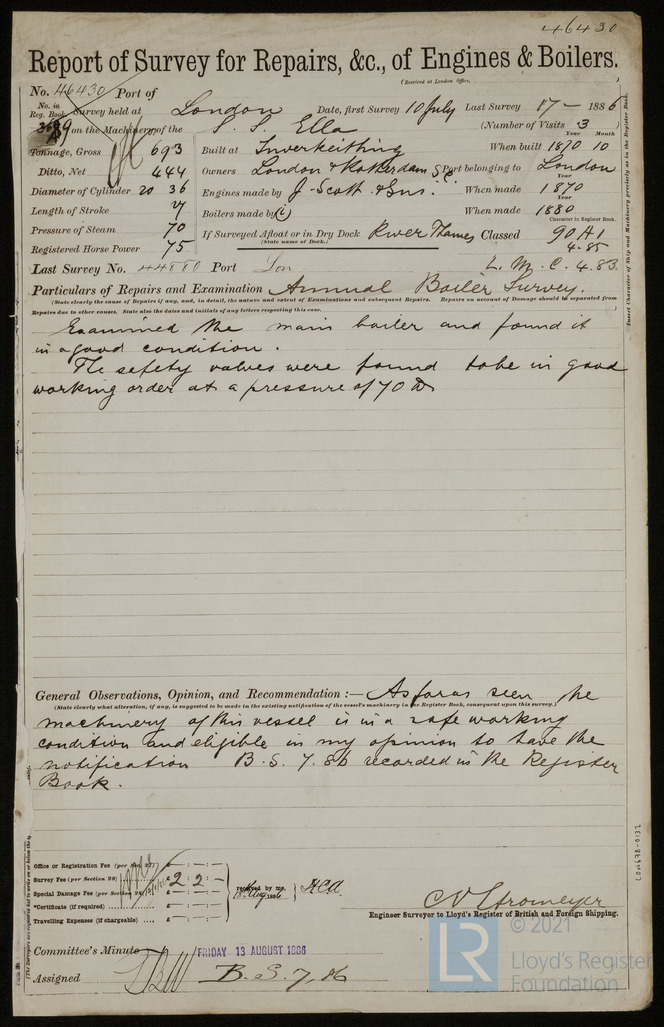 46430
Report of Survey for Repairs, &c., of Engines & Boilers.
(Received at London Office,
No. 46430 Port of
No. in Reg. Book Survey held at London Date, first Survey 10 July Last Survey 17 – 1886
on the Machinery of the S. S. Ella (Number of Visits 3
Tonnage, Gross 693 Built at Inverkeithing When built 1870 10
Year Month
Ditto, Net 444 Owners London & Rotterdam S. C. Port belonging to London
Diameter of Cylinder 20 36 Engines made by J. Scott & Sons. When made 1870
Year
Length of Stroke 27 Boilers made by When made 1880
Year
Pressure of Steam 70 If Surveyed Afloat or in Dry Dock River Thames Classed 90 A1
(State name of Dock.)
Character in Register Book.
4.85
Registered Horse Power 75
Last Survey No. 44880 Port Lon L. M. C. 4.83.
Particulars of Repairs and Examination Annual Boiler Survey.
(State clearly the cause of Repairs if any, and, in detail, the nature and extent of Examinations and subsequent Repairs. Repairs on account of Damage should be separated from
Repairs due to other causes. State also the dates and initials of any letters respecting this case.
Examined the main boiler and found it
in a good condition.
The safety valves were found to be in good
working order at a pressure of 70 lb
General Observations, Opinion, and Recommendation :— As far as seen the
(State clearly what alteration, if any, is suggested to be made in the existing notification of the vessel's machinery in the Register Book, consequent upon this survey.)
machinery of this vessel is in a safe working
condition and eligible in my opinion to have the
notification B. S. 7. 86 recorded in the Register
Book.
Office or Registration Fee (per Sec. 27)
Survey Fee (per Section 28) £ 2 : 2 : –
Special Damage Fee (per Section
*Certificate (if required)
Travelling Expenses (if chargeable)
received by me,
Aug 1886
C. E. Stromeyer
Engineer Surveyor to Lloyd's Register of British and Foreign Shipping.
Committee's Minute FRIDAY 13 AUGUST 1886
Assigned B. S. 7, 86
Insert Character of Ship and Machinery precisely as in the Register Book.
LON678-0132
LR
© 2021
Lloyd's Register
Foundation